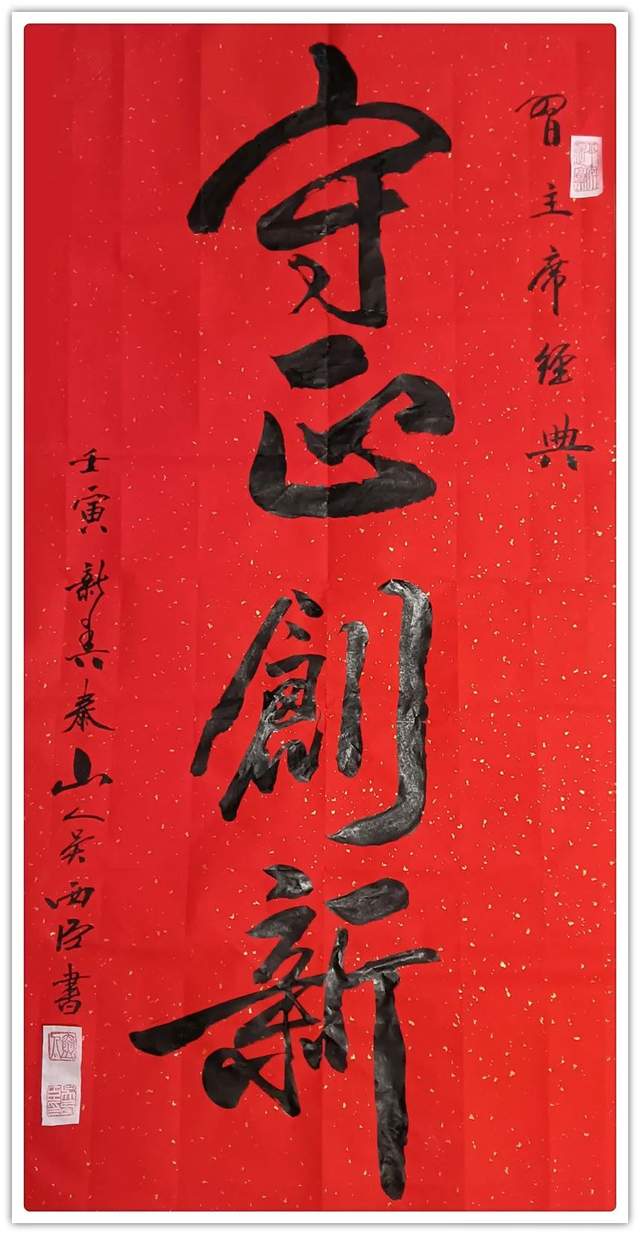 習主席經典
守正創新
壬寅新春秦山人吴西臣書